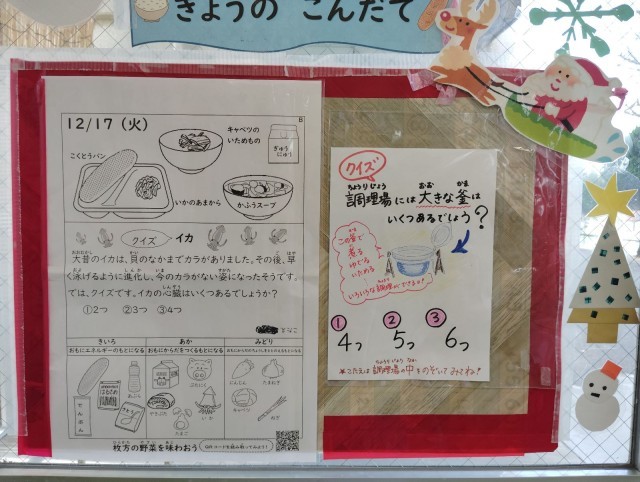 きょうの こんだて
12/17 (火)
B
キャベツの
いためもの
ぎゅう
にゅう
こくとうパン
いかのあまから
かふうスープ
クイズ イカ
大昔のイカは、貝のなかまでカラがありました。その後、早
く泳げるように進化し、今のカラがない姿になったそうです。
では、クイズです。イカの心臓はいくつあるでしょうか?
①2つ ②3つ ③4つ
きいろ あか みどり
おもにエネルギーのもとになる おもにからだをつくるもとになる おもにからだのちょうしをととのえるもとになる
ぶたにく
にんじん
たまねぎ
いか
キャベツ
たまご
枚方の野菜を味わおう
QRコードを読み取ってみよう!
クイズ
調理場には大きな釜は
いくつあるでしょう?
この釜で
煮る
ゆでる
いためる
いろいろな調理ができます!
① ② ③
4つ 5つ 6つ
★こたえは調理場の中をのぞいてみてね!